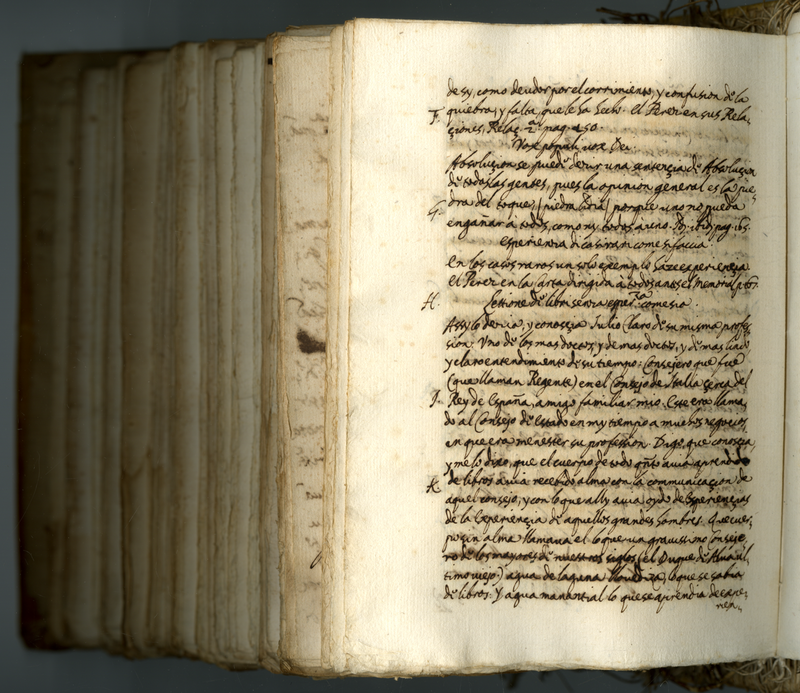 de sy, como deudor por el corrimiento, y confusion de la
quiebra, y falta que le ha hecho. El Perez en sus Rela,
F. ciones, Relaç. 2ª. pag. 150.
Vox populi, vox Dei.
Absolucion se puede dezir una sentençia de Absoluçion
de todas las gentes, pues la opinion general es la pie,
dra del toque, (piedra Lidia) porque uno no pueda
G. engañar à todos, como ny todos à uno. pag. 165.
Esperienza di casi rari come si faccia
En los casos raros un solo exemplo haze experiençia.
El Perez en la carta dirigida a todos ... Memorial
H. Lettione di libri senza esper.za come sia.
Assy lo dezia, y conosçia Julio Claro de su misma profes,
sion. Uno de los mas doctos, y de mas y de mas
y claro entendimiento de su tiempo: Consejero que fue
(que llaman Regente) en el Consejo de Italia çerca del
J. Rey de España, amigo familiar mio. Este era llama,
do al Consejo de Estado en my tiempo a muchos negocios,
en que era menester su profession. Digo, que conosçia,
y me lo dixo, que el cuerpo de todo qnto avia aprendido
K. de libros avia recebido alma con la communicaçion de
aquel consejo, y con lo que ally avia oydo de Esperiençias
de la Experiençia de aquellos grandes hombres. Que cuer,
po sin alma llamava el lo que un gravissimo Conseje,
ro de los mayores de nuestros siglos (el Duque de Alva ul,
timo viejo) agua de laguna llovediza, lo que se sabia
de libros. Y agua manantial lo que se aprendia de expe,
rien,